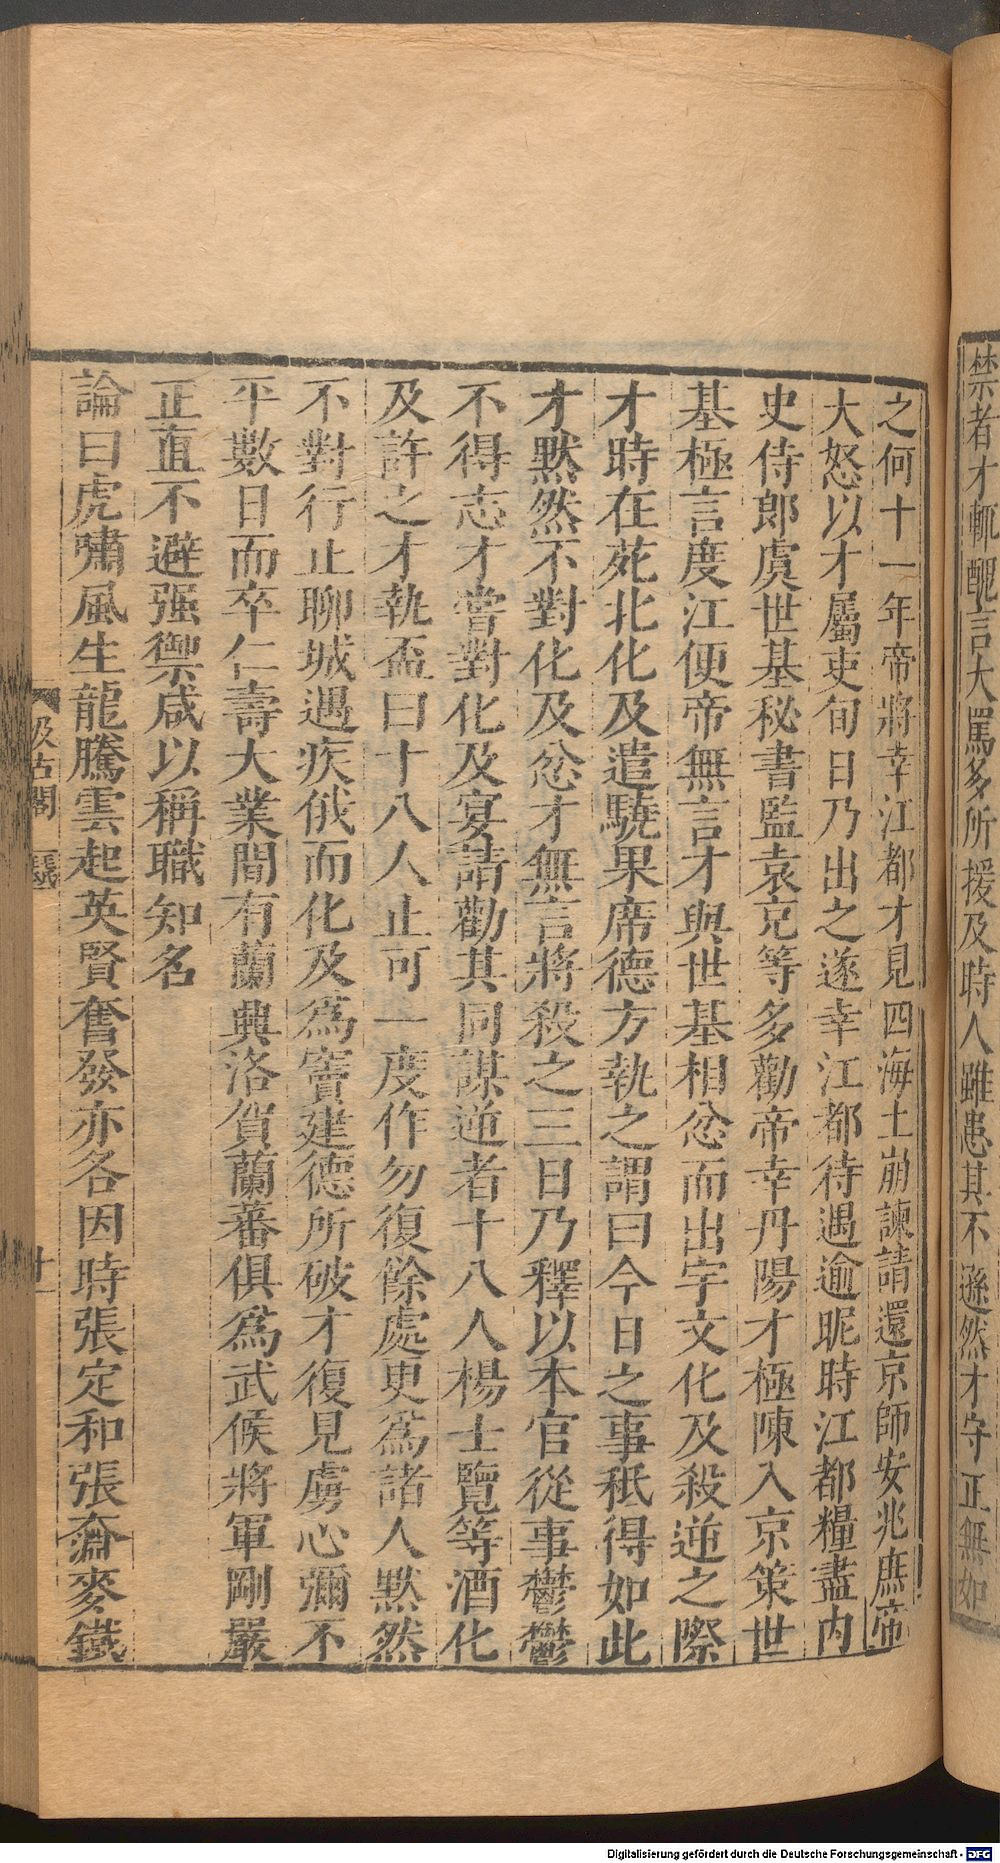 禁者才輒醜言大罵多所援及時人雖患其不遜然才守正無如
之何十一年帝將幸江都才見四海土崩諫請還京師安兆庶帝
大怒以才屬吏旬日乃出之遂幸江都待遇逾昵時江都糧盡内
史侍郎虞世基秘書監袁充等多勸帝幸丹陽才極陳入京策世
基極言度江便帝無言才與世基相忿而出宇文化及殺逆之際
才時在苑北化及遣驍果席德方執之謂曰今日之事秖得如此
才黙然不對化及忿才無言將殺之三日乃釋以本官從事鬱鬱
不得志才嘗對化及宴請勸其同謀逆者十八人楊士覽等酒化
及許之才執盃曰十八人止可一度作勿復餘處更爲諸人黙然
不對行止聊城遇疾俄而化及爲竇建德所破才復見虜心彌不
平數日而卒仁壽大業間有蘭興洛賀蘭蕃俱爲武候將軍剛嚴
正直不避强禦咸以稱職知名
論曰虎嘯風生龍騰雲起英賢奮發亦各因時張定和張奫麥鐵
汲古閣
十一
Digitalisierung gefördert durch die Deutsche Forschungsgemeinschaft - DFG